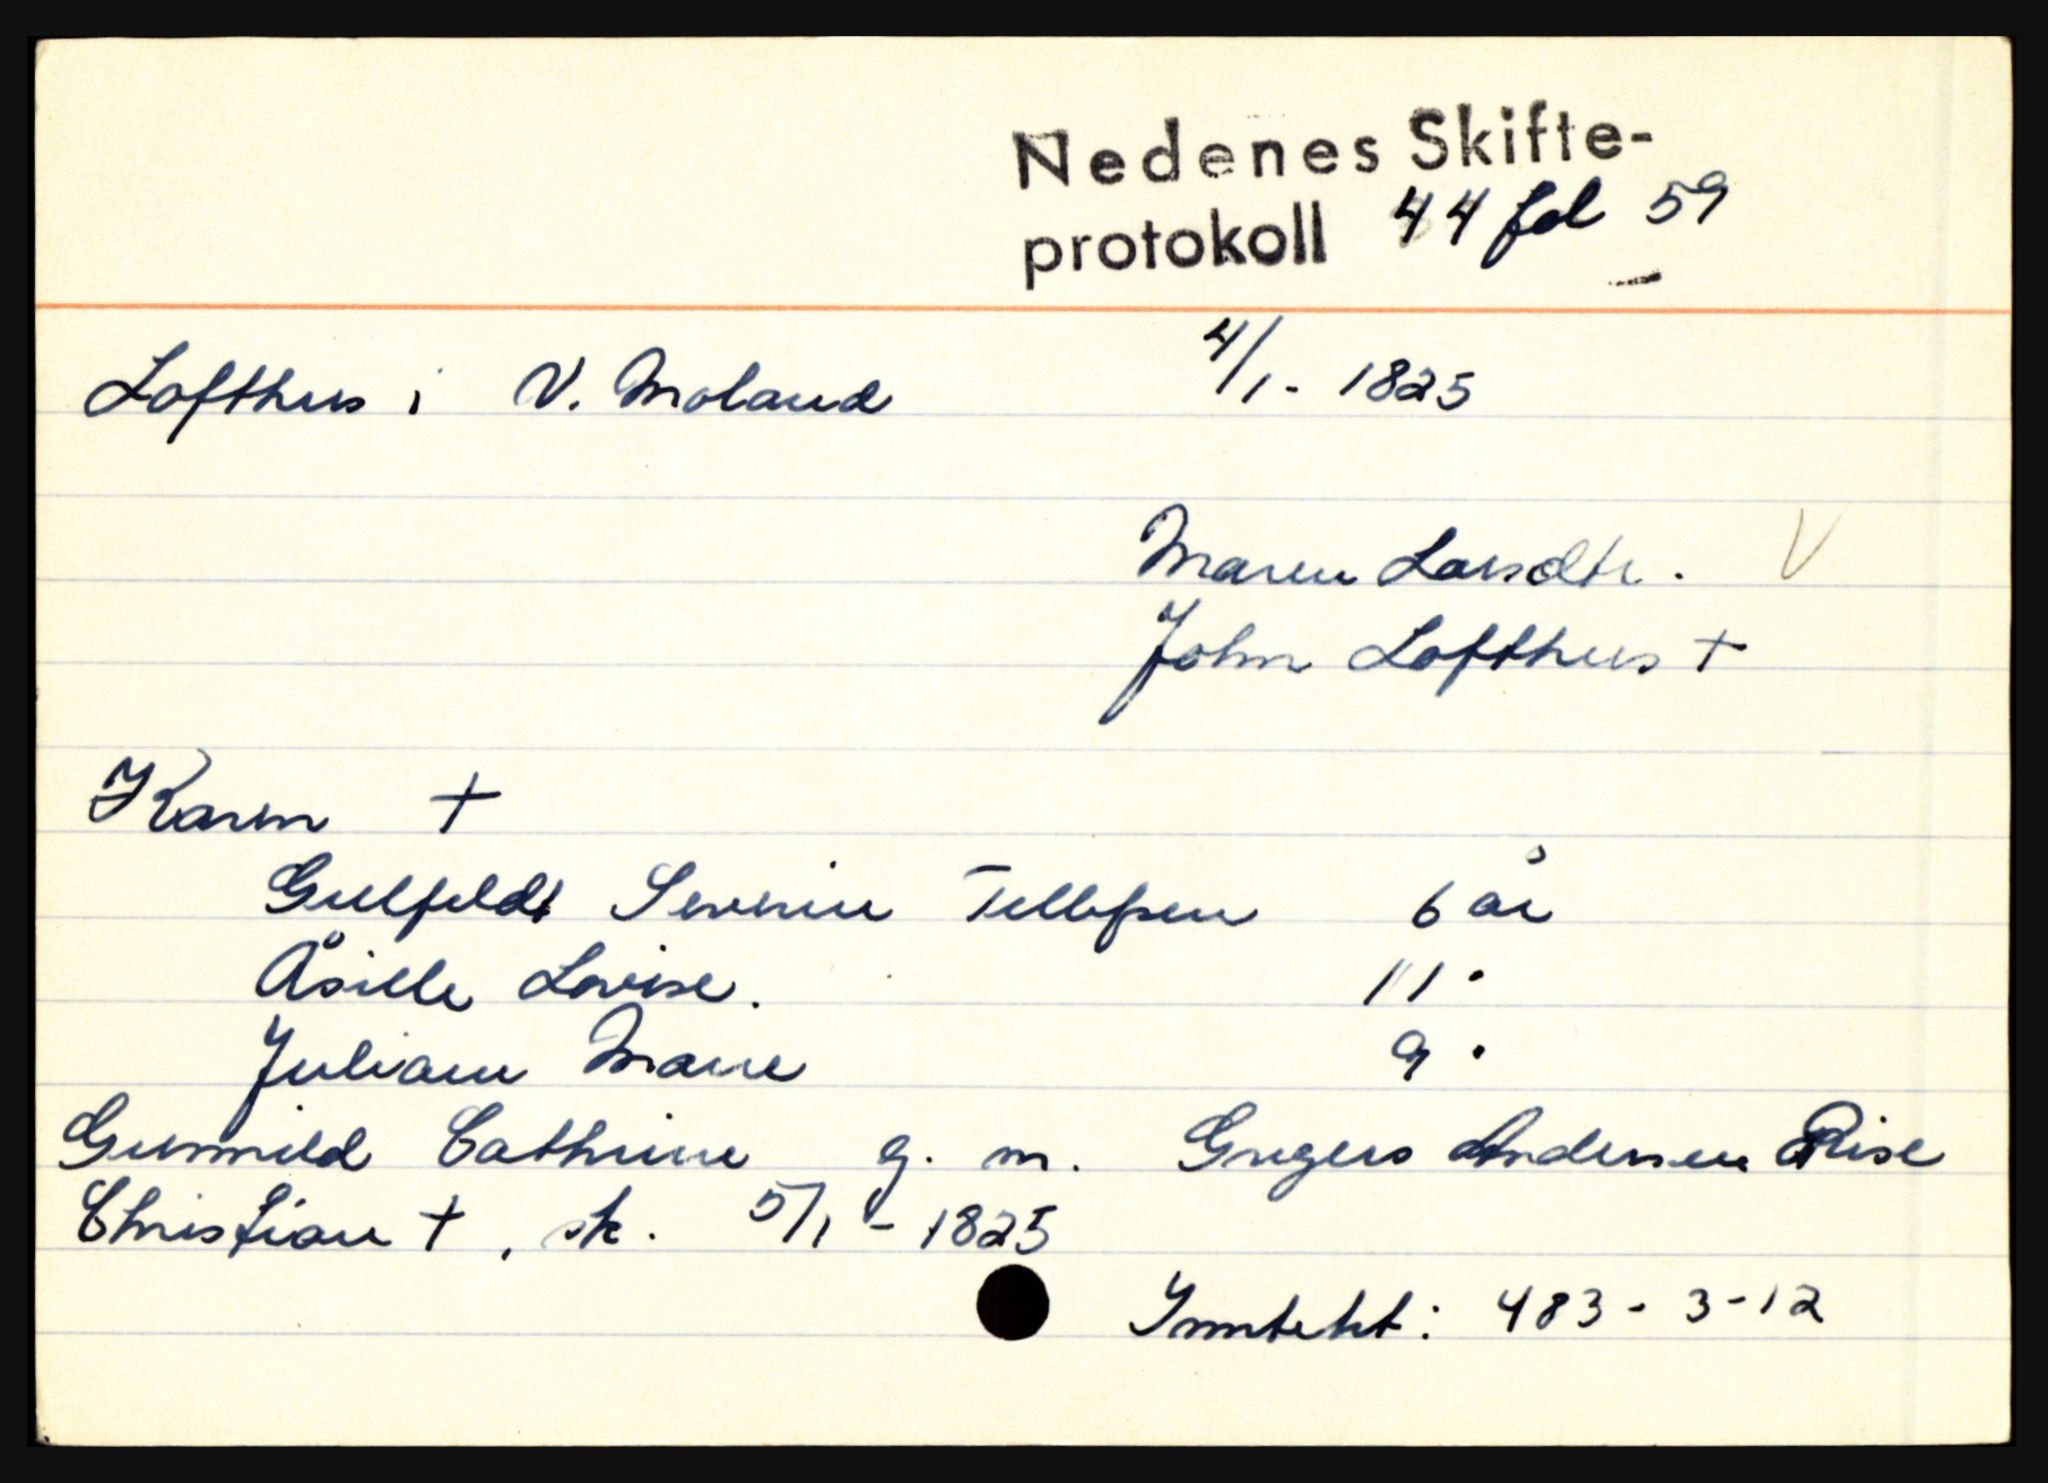 Nedenes Skifte-
protokoll 44 fol 59
Lofthus i V. Moland 4/1- 1825
Maren Larsdtr. V
John Lofthus +
Karen +
Gulfeldt Severin Tellefsen 6 år
Åsille Lovise. 11 "
Juliane Marie 9 "
Gunnild Cathrine g. m. Gregers Andersen Rise
Christian +, sk. 5/1 - 1825
Inntekt: 483 - 3 - 12